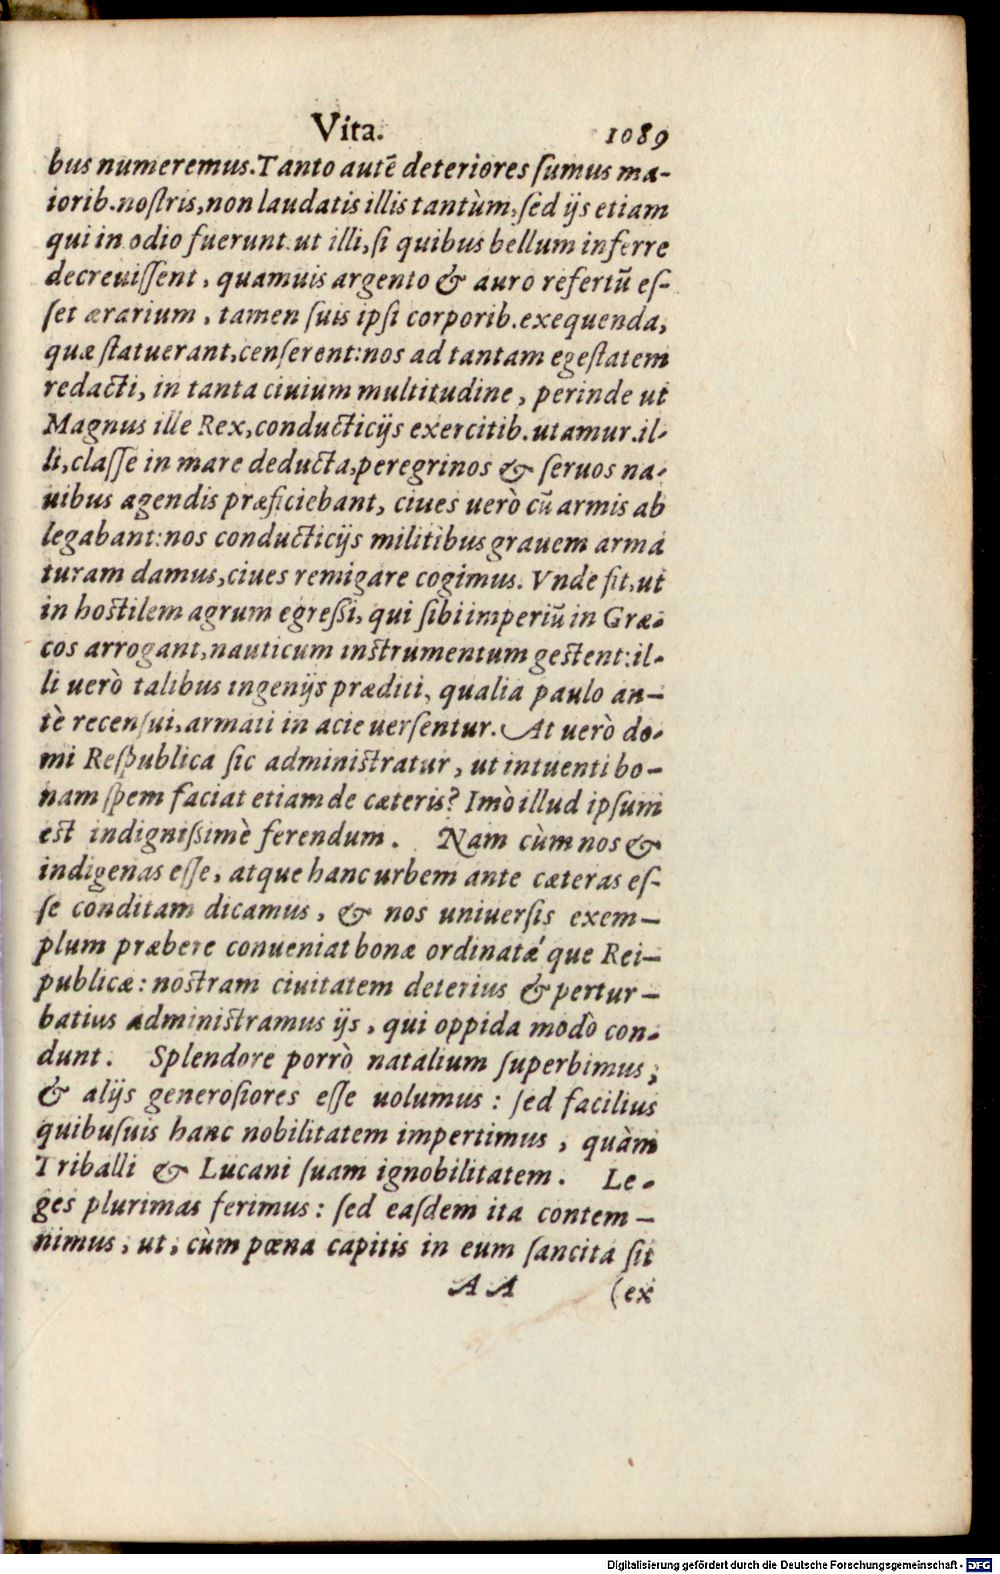 Vita. 1089
bus numeremus. Tanto autē deteriores ſumus ma-
iorib. noſtris, non laudatis illis tantùm, ſed ijs etiam
qui in odio fuerunt. ut illi, ſi quibus bellum inferre
decreuiſſent, quamuis argento & auro refertū eſ-
ſet ærarium, tamen ſuis ipſi corporib. exequenda,
quæ ſtatuerant, cenſerent: nos ad tantam egeſtatem
redacti, in tanta ciuium multitudine, perinde ut
Magnus ille Rex, conducticijs exercitib. utamur. il-
li, claſſe in mare deducta, peregrinos & ſeruos na-
uibus agendis præficiebant, ciues uerò cū armis ab
legabant: nos conducticijs militibus grauem arma
turam damus, ciues remigare cogimus. Vnde fit, ut
in hoſtilem agrum egreßi, qui ſibi imperiū in Græ-
cos arrogant, nauticum inſtrumentum geſtent: il-
li uerò talibus ingenijs præditi, qualia paulo an-
tè recenſui, armati in acie uerſentur. At uerò do-
mi Reſpublica ſic adminiſtratur, ut intuenti bo-
nam ſpem faciat etiam de cæteris? Imò illud ipſum
eſt indignißimè ferendum. Nam cùm nos &
indigenas eſſe, atque hanc urbem ante cæteras eſ-
ſe conditam dicamus, & nos uniuerſis exem-
plum præbere conueniat bonæ ordinatǽ que Rei-
publicæ: noſtram ciuitatem deterius & pertur-
batius adminiſtramus ijs, qui oppida modò con-
dunt. Splendore porrò natalium ſuperbimus,
& alijs generoſiores eſſe uolumus: ſed facilius
quibuſuis hanc nobilitatem impertimus, quàm
Triballi & Lucani ſuam ignobilitatem. Le-
ges plurimas ferimus: ſed eaſdem ita contem-
nimus, ut, cùm pœna capitis in eum ſancita ſit
AA (ex
Digitalisierung gefördert durch die Deutsche Forschungsgemeinschaft - DFG